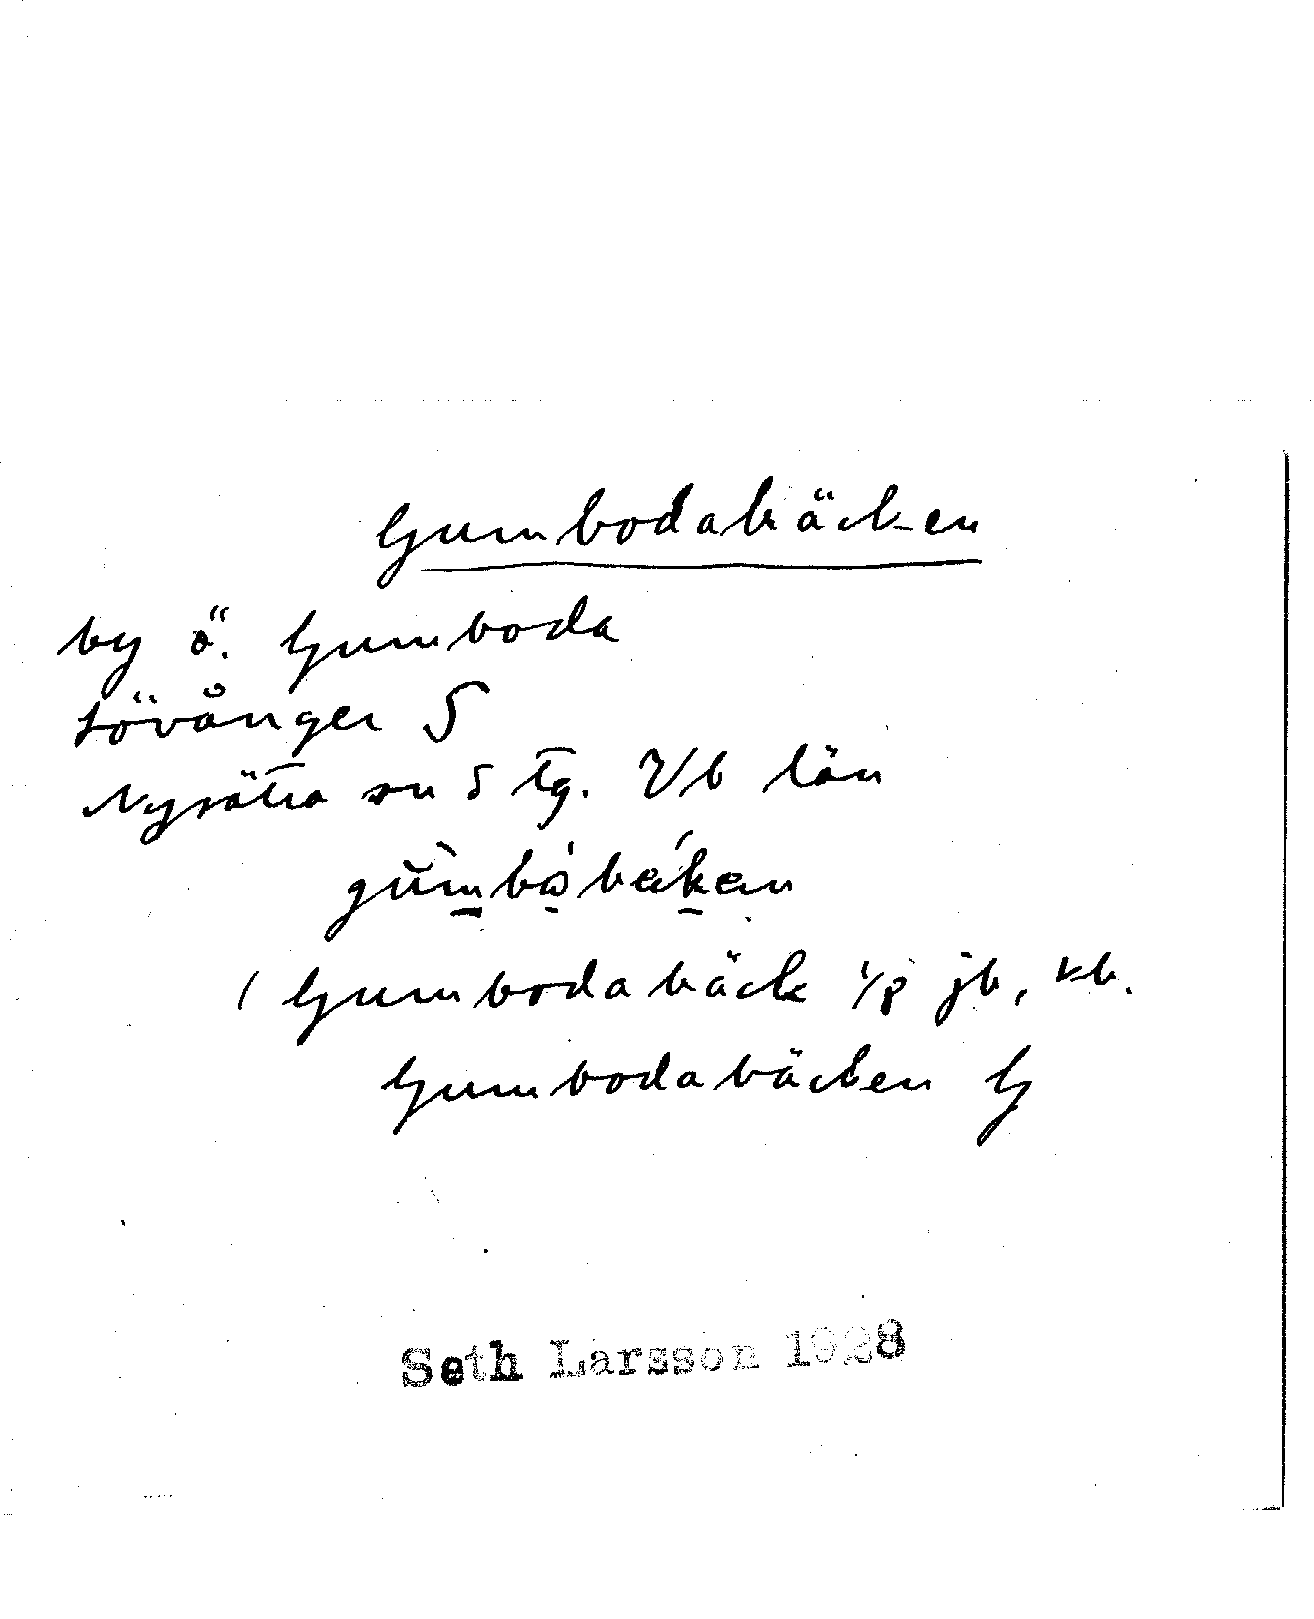 Gumbodabäcken
by ö. Gumboda
Lövånger S
Nysätra sn S tg. V/b län
(Gumbodabäck jb, kb.
Gumbodabäcken G
Seth Larsson 1928